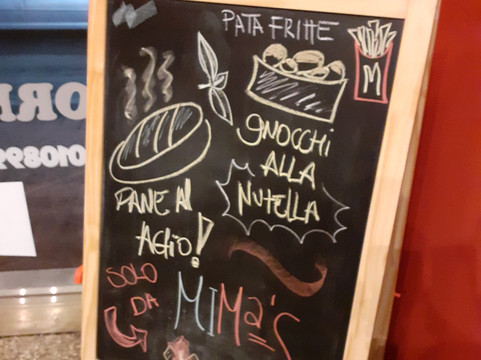 PATA FRITTE
M
GNOCCHI
ALLA
NUTELLA
PANE Al
AGlio!
SOLO
DA
MIMa's